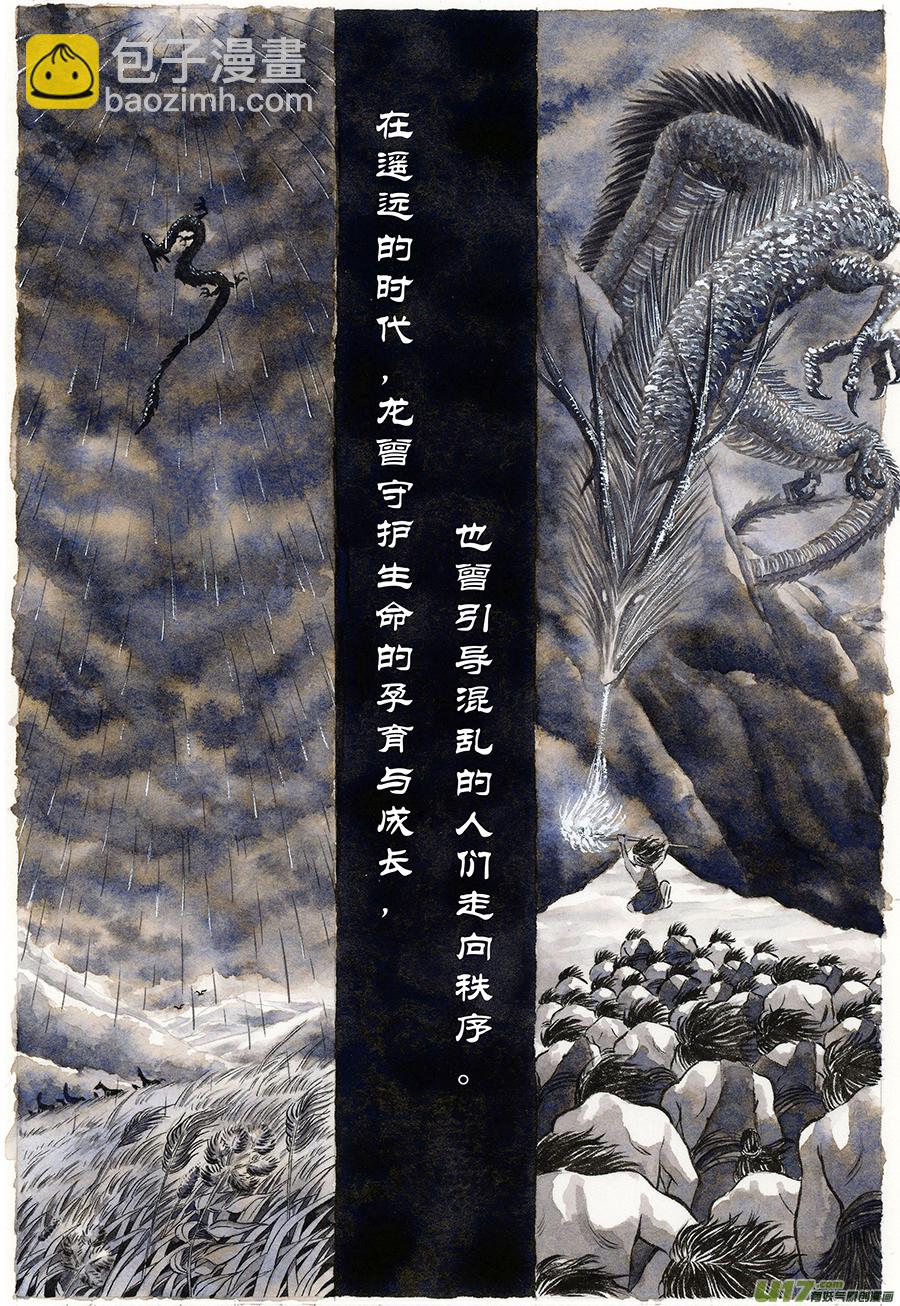 包子漫畫
baozimh.com
在遥远的时代，龙曾守护生命的孕育与成长，
也曾引导混乱的人们走向秩序。
U17.com
有妖气原创漫画